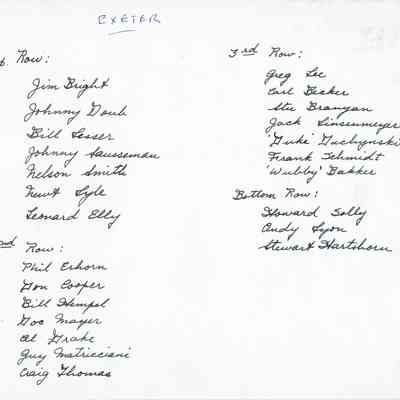 EXETER
Row:
Jim Bright
Johnny Doub
Bill Lesser
Johnny Sausseman
Nelson Smith
Newt Lyle
Leonard Elly
Row:
Phil Erhorn
Don Cooper
Bill Hempel
Doc Mayer
Al Drake
Guy Matricciani
Craig Thomas
3rd Row:
Greg Lee
Carl Becker
Stu Branyan
Jack Linsenmeyer
'Duke' Duchynski
Frank Schmidt
'Wubby' Bakker
Bottom Row:
Howard Solly
Andy Lyon
Stewart Hartshorn